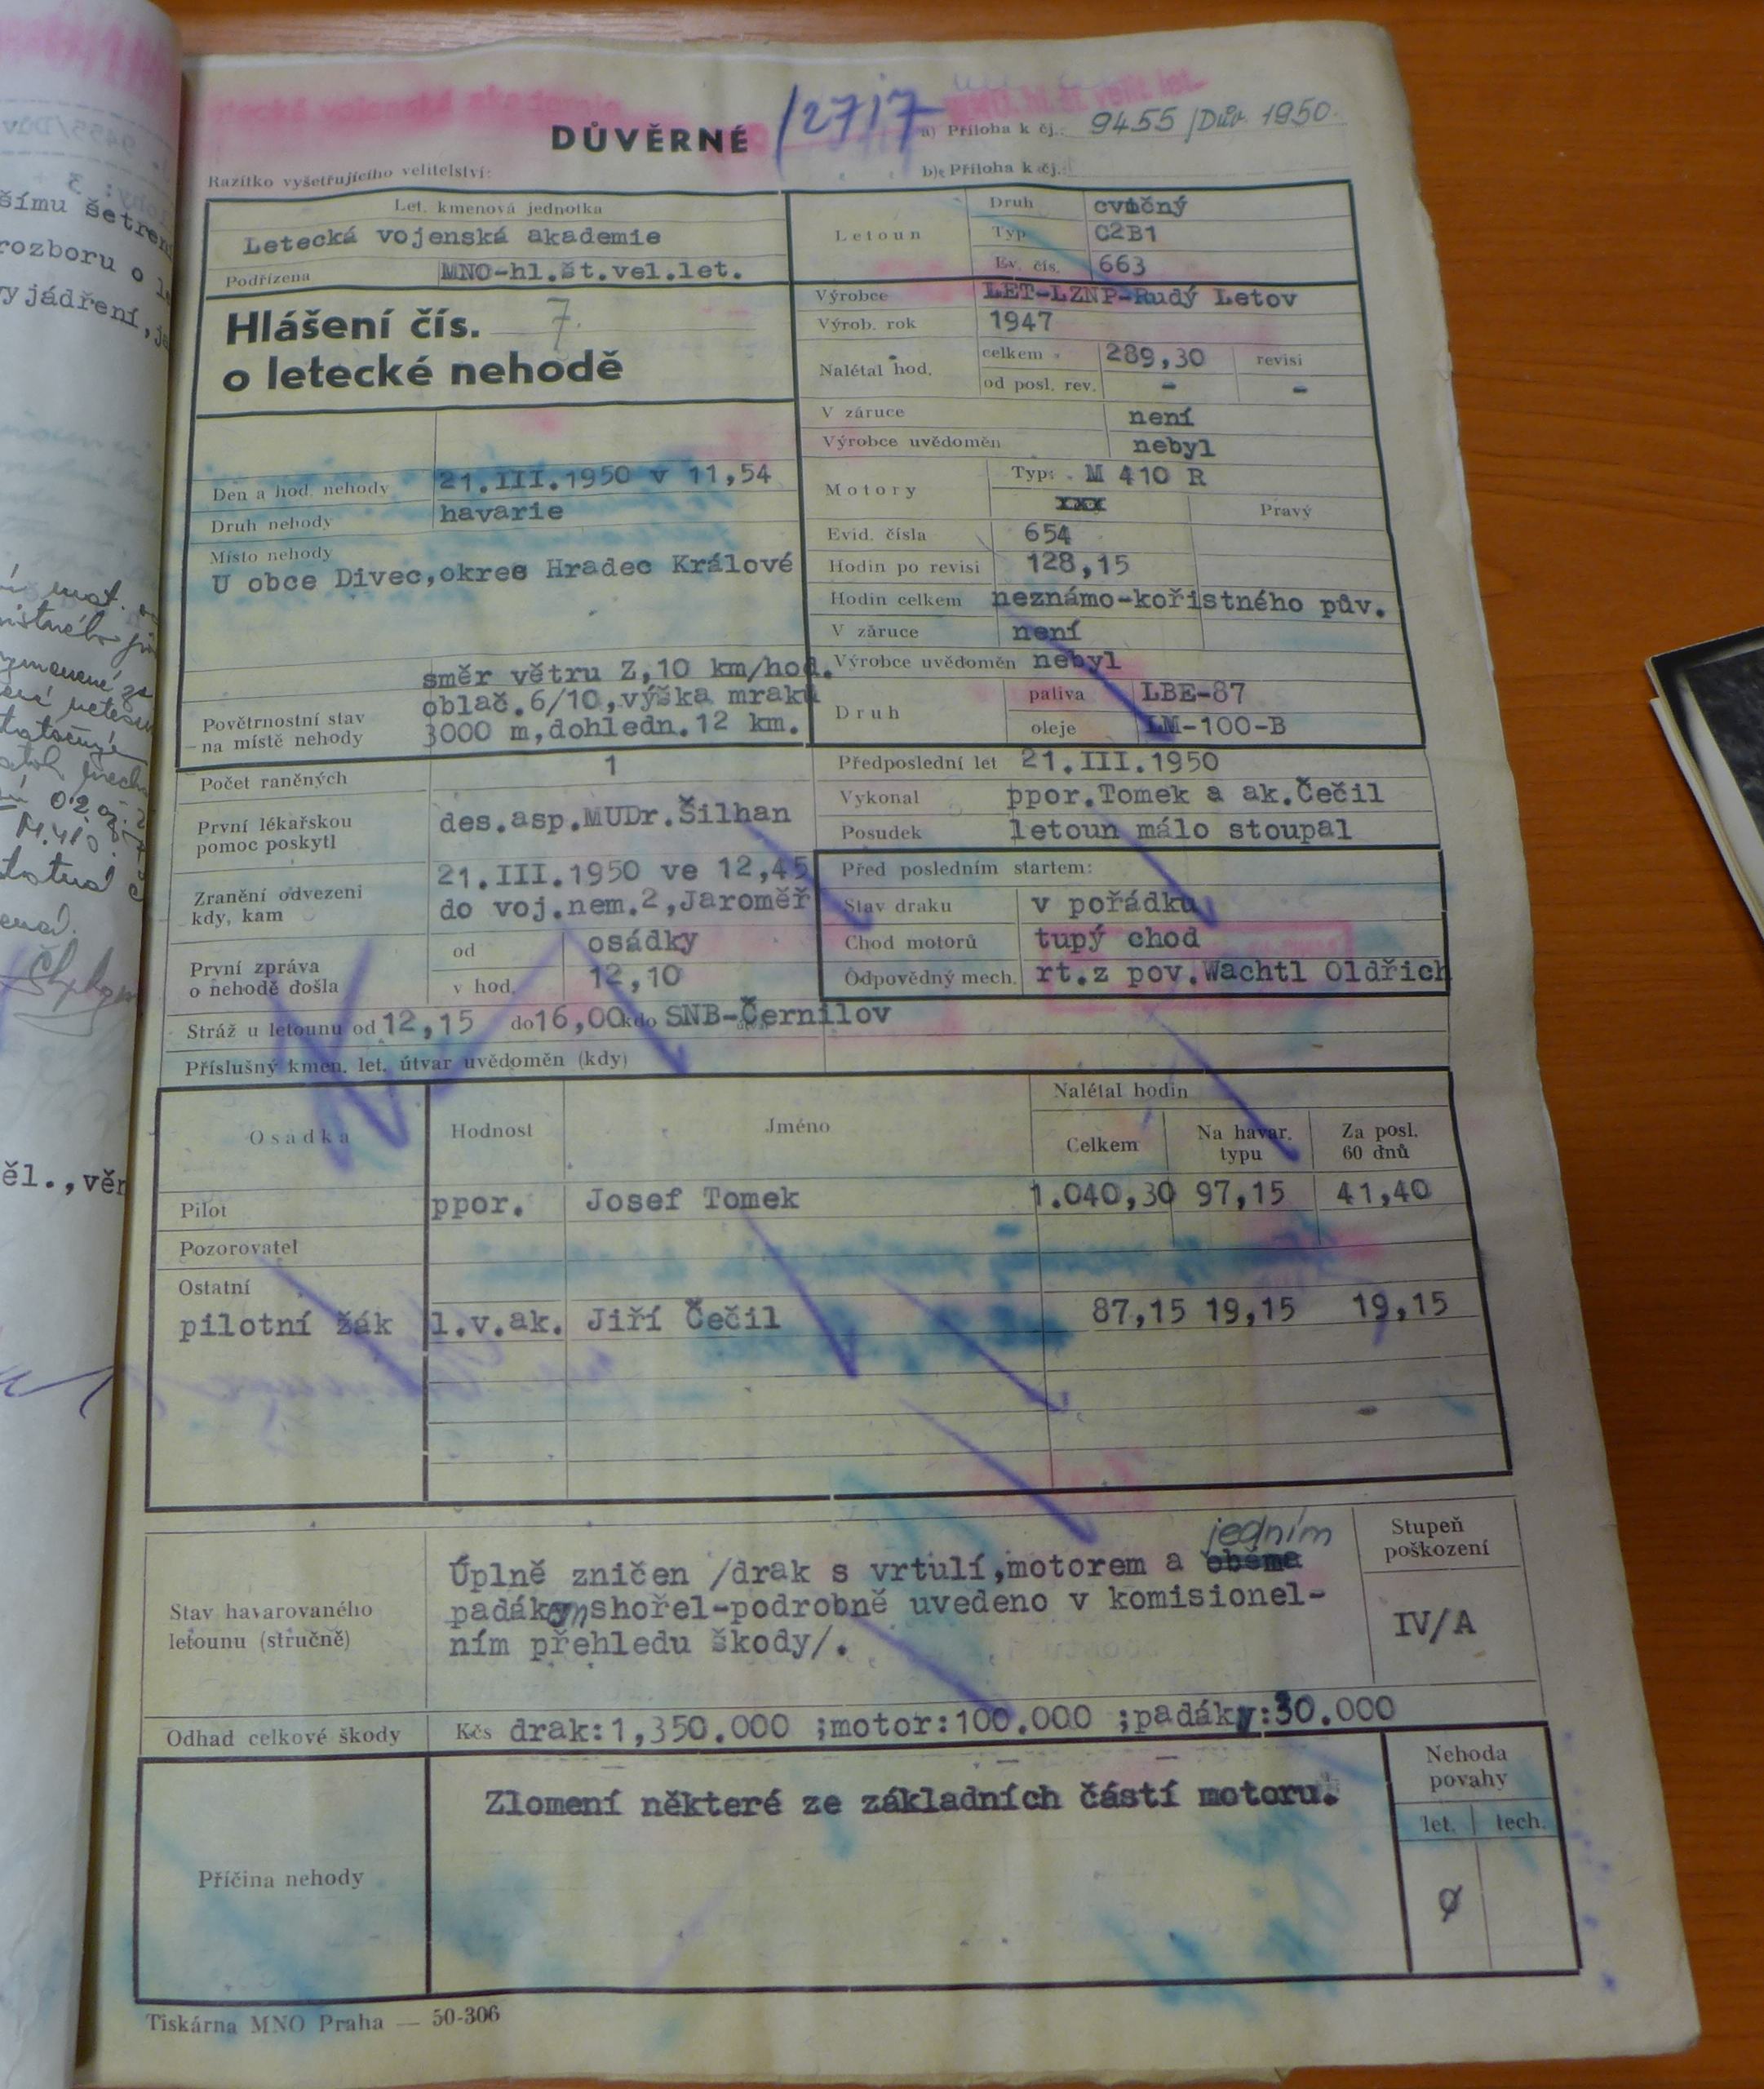 DŮVĚRNÉ
a) Příloha k čj.: 9455/Dův. 1950.
Razítko vyšetřujícího velitelství:
b) Příloha k čj.:
Let. kmenová jednotka
Letecká vojenská akademie
Podřízena MNO-hl.št.vel.let.
Hlášení čís. 7.
o letecké nehodě
Letoun
Druh cvičný
Typ C2B1
Ev. čís. 663
Výrobce LET-LZNP-Rudý Letov
Výrob. rok 1947
Nalétal hod. celkem 289,30 revisi
od posl. rev. - -
V záruce není
Výrobce uvědoměn nebyl
Den a hod. nehody 21.III.1950 v 11,54
Druh nehody havarie
Místo nehody
U obce Divec,okres Hradec Králové
Motory Typ: M 410 R
xxx Pravý
Evid. čísla 654
Hodin po revisi 128,15
Hodin celkem neznámo-kořistného pův.
V záruce není
Výrobce uvědoměn nebyl
Povětrnostní stav
na místě nehody
směr větru Z,10 km/hod.
oblač.6/10,výška mraků
3000 m,dohledn.12 km.
Druh paliva LBE-87
oleje LM-100-B
Počet raněných 1
První lékařskou
pomoc poskytl des.asp.MUDr.Šilhan
Zranění odvezeni
kdy, kam
21.III.1950 ve 12,45
do voj.nem.2,Jaroměř
První zpráva
o nehodě došla
od osádky
v hod. 12,10
Předposlední let 21.III.1950
Vykonal ppor.Tomek a ak.Čečil
Posudek letoun málo stoupal
Před posledním startem:
Stav draku v pořádku
Chod motorů tupý chod
Odpovědný mech. rt.z pov.Wachtl Oldřich
Stráž u letounu od 12,15 do 16,00 kdo SNB-Černilov
Příslušný kmen. let. útvar uvědoměn (kdy)
Osádka Hodnost Jméno Nalétal hodin
Celkem Na havar. typu Za posl. 60 dnů
Pilot ppor. Josef Tomek 1.040,30 97,15 41,40
Pozorovatel
Ostatní
pilotní žák l.v.ak. Jiří Čečil 87,15 19,15 19,15
Stav havarovaného
letounu (stručně)
jedním
Úplně zničen /drak s vrtulí,motorem a oběma
padákem shořel-podrobně uvedeno v komisionel-
ním přehledu škody/.
Stupeň
poškození
IV/A
Odhad celkové škody Kčs drak:1,350.000 ;motor:100.000 ;padáky:30.000
Příčina nehody
Zlomení některé ze základních částí motoru.
Nehoda
povahy
let. tech.
Tiskárna MNO Praha — 50-306